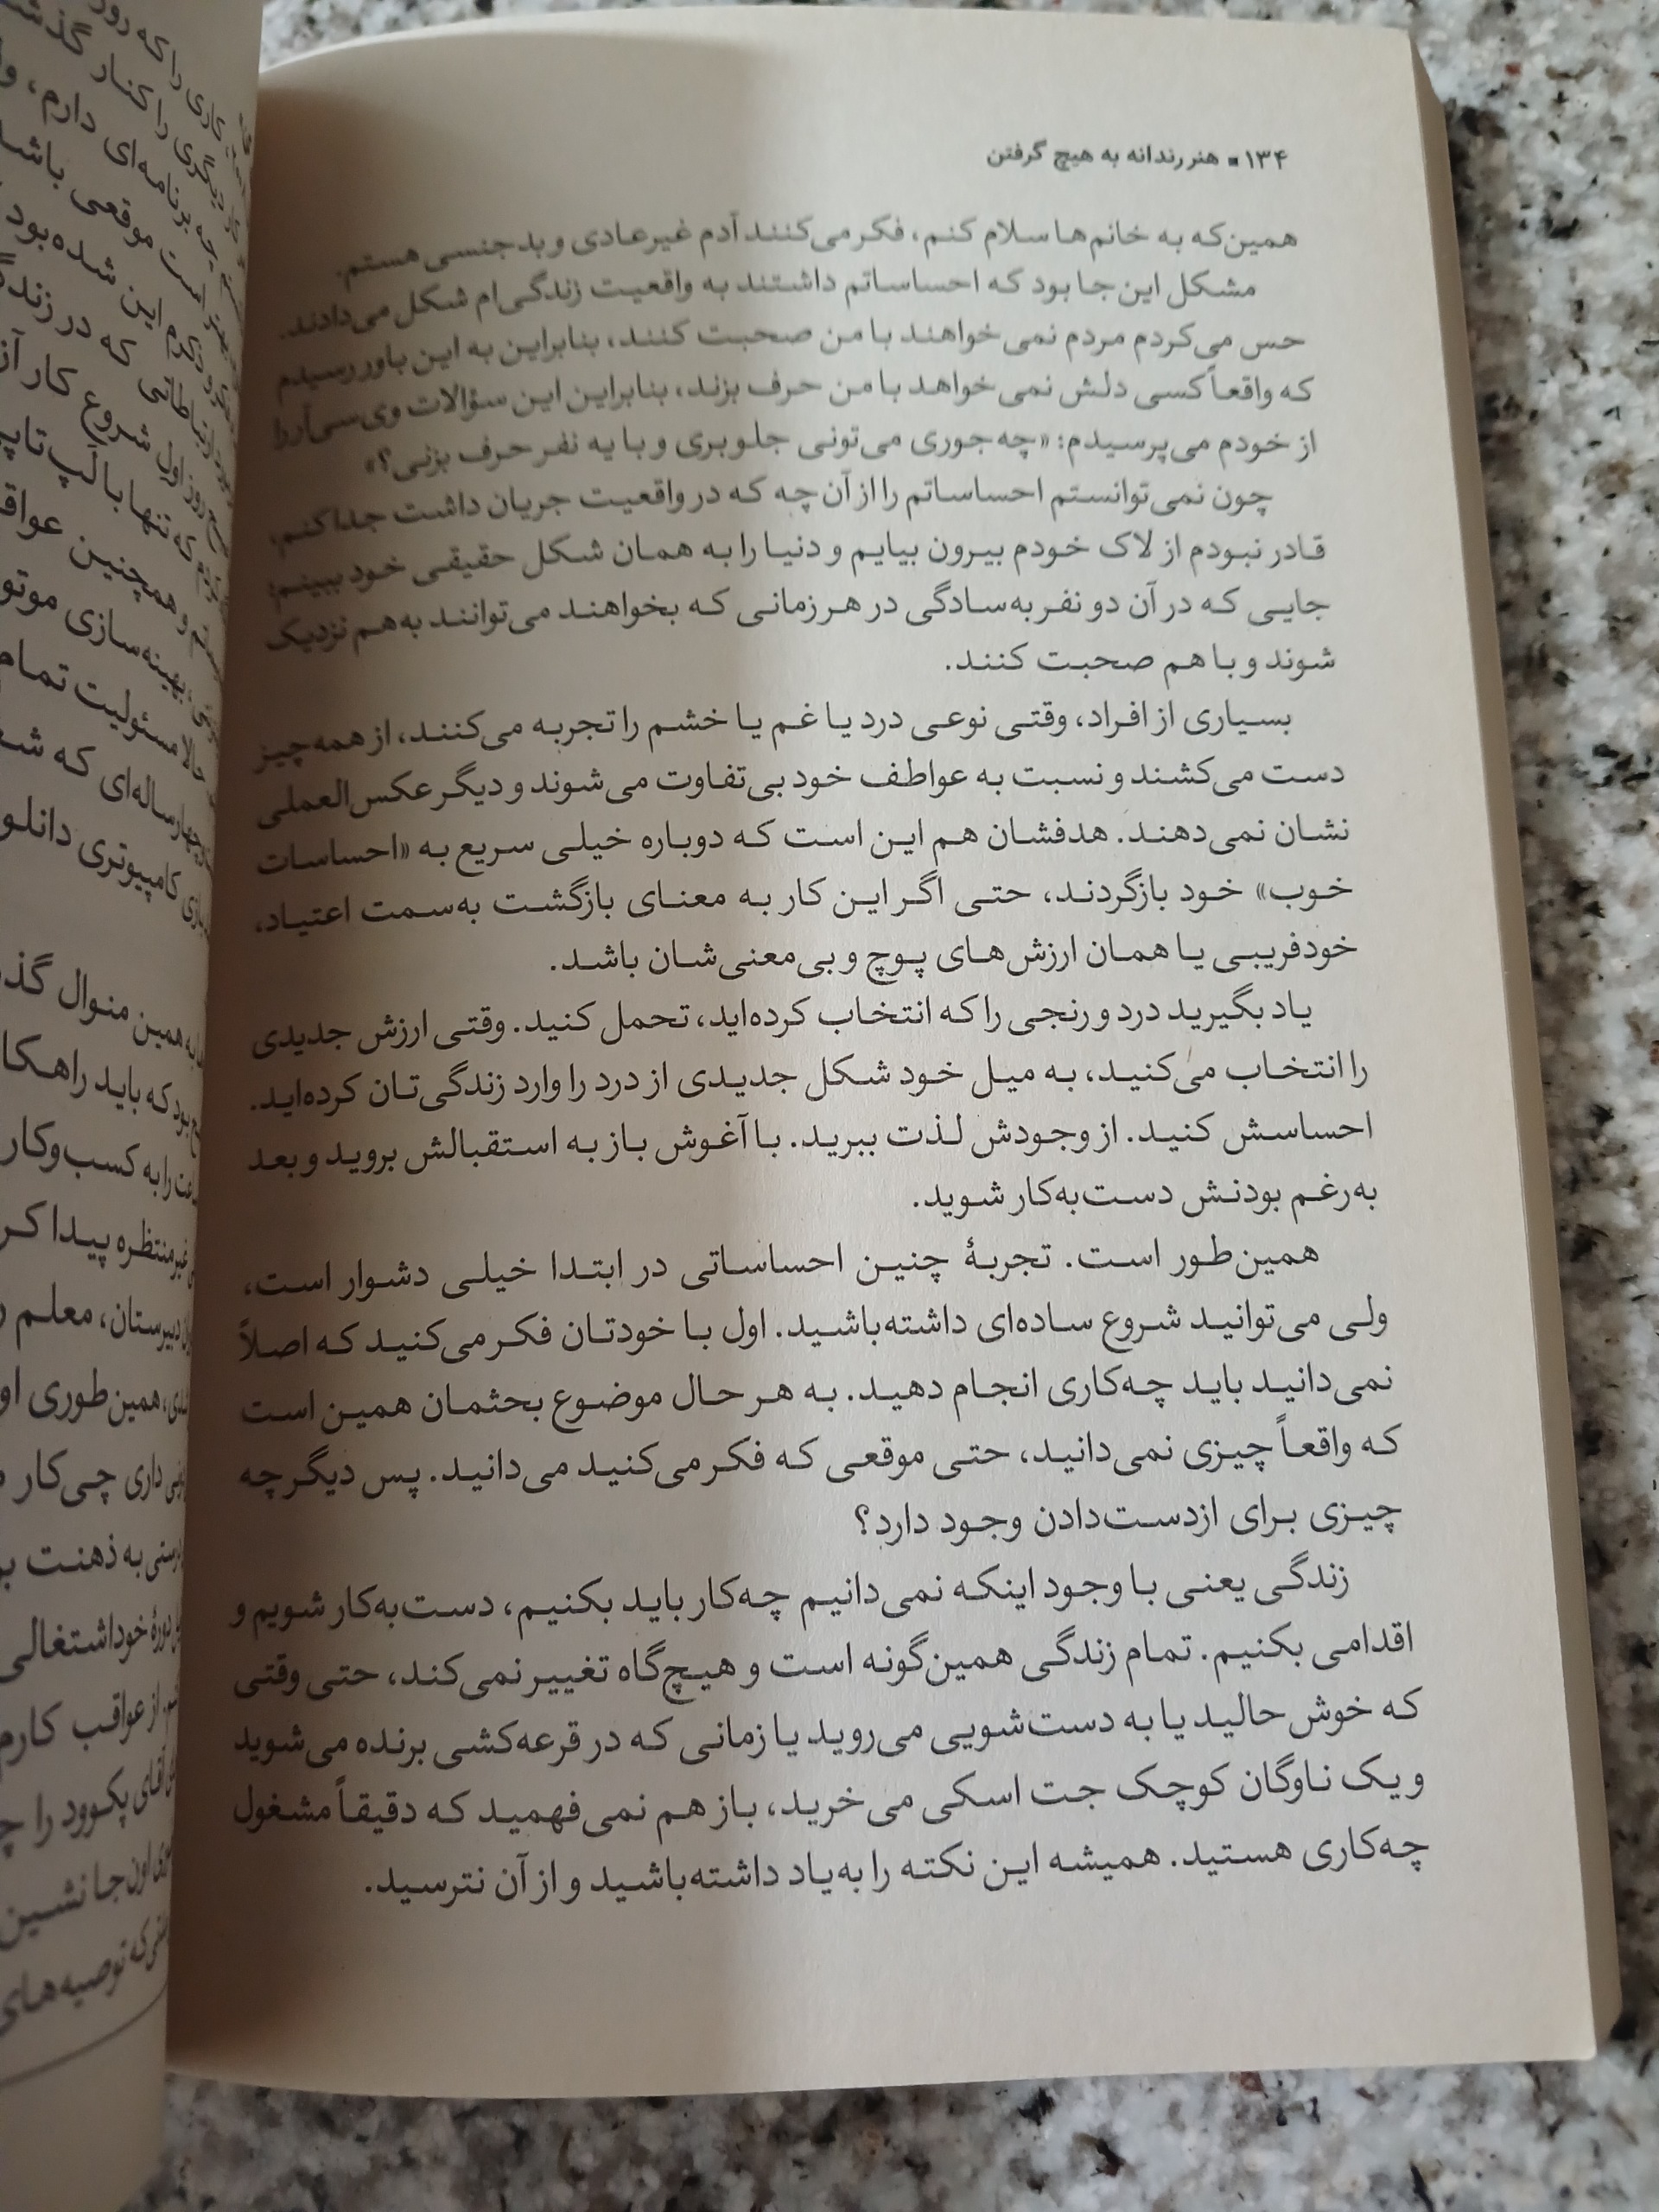 ۱۳۴ ■ هنر رندانه به هیچ گرفتن
همین‌که به خانم‌ها سلام کنم، فکر می‌کنند آدم غیرعادی و بدجنسی هستم.
مشکل این‌جا بود که احساساتم داشتند به واقعیت زندگی‌ام شکل می‌دادند.
حس می‌کردم مردم نمی‌خواهند با من صحبت کنند، بنابراین به این باور رسیدم
که واقعاً کسی دلش نمی‌خواهد با من حرف بزند، بنابراین این سؤالات وی‌سی‌آر را
از خودم می‌پرسیدم: «چه جوری می‌تونی جلو بری و با یه نفر حرف بزنی؟»
چون نمی‌توانستم احساساتم را از آن‌چه که در واقعیت جریان داشت جدا کنم،
قادر نبودم از لاک خودم بیرون بیایم و دنیا را به همان شکل حقیقی خود ببینم؛
جایی که در آن دو نفر به‌سادگی در هر زمانی که بخواهند می‌توانند به‌هم نزدیک
شوند و با هم صحبت کنند.
بسیاری از افراد، وقتی نوعی درد یا غم یا خشم را تجربه می‌کنند، از همه‌چیز
دست می‌کشند و نسبت به عواطف خود بی‌تفاوت می‌شوند و دیگر عکس‌العملی
نشان نمی‌دهند. هدفشان هم این است که دوباره خیلی سریع به «احساسات
خوب» خود بازگردند، حتی اگر این کار به معنای بازگشت به‌سمت اعتیاد،
خودفریبی یا همان ارزش‌های پوچ و بی‌معنی‌شان باشد.
یاد بگیرید درد و رنجی را که انتخاب کرده‌اید، تحمل کنید. وقتی ارزش جدیدی
را انتخاب می‌کنید، به میل خود شکل جدیدی از درد را وارد زندگی‌تان کرده‌اید.
احساسش کنید. از وجودش لذت ببرید. با آغوش باز به استقبالش بروید و بعد
به‌رغم بودنش دست‌به‌کار شوید.
همین‌طور است. تجربهٔ چنین احساساتی در ابتدا خیلی دشوار است،
ولی می‌توانید شروع ساده‌ای داشته‌باشید. اول با خودتان فکر می‌کنید که اصلاً
نمی‌دانید باید چه‌کاری انجام دهید. به هر حال موضوع بحثمان همین است
که واقعاً چیزی نمی‌دانید، حتی موقعی که فکر می‌کنید می‌دانید. پس دیگر چه
چیزی برای ازدست‌دادن وجود دارد؟
زندگی یعنی با وجود اینکه نمی‌دانیم چه‌کار باید بکنیم، دست‌به‌کار شویم و
اقدامی بکنیم. تمام زندگی همین‌گونه است و هیچ‌گاه تغییر نمی‌کند، حتی وقتی
که خوش حالید یا به دست‌شویی می‌روید یا زمانی که در قرعه‌کشی برنده می‌شوید
و یک ناوگان کوچک جت اسکی می‌خرید، باز هم نمی‌فهمید که دقیقاً مشغول
چه‌کاری هستید. همیشه این نکته را به‌یاد داشته‌باشید و از آن نترسید.